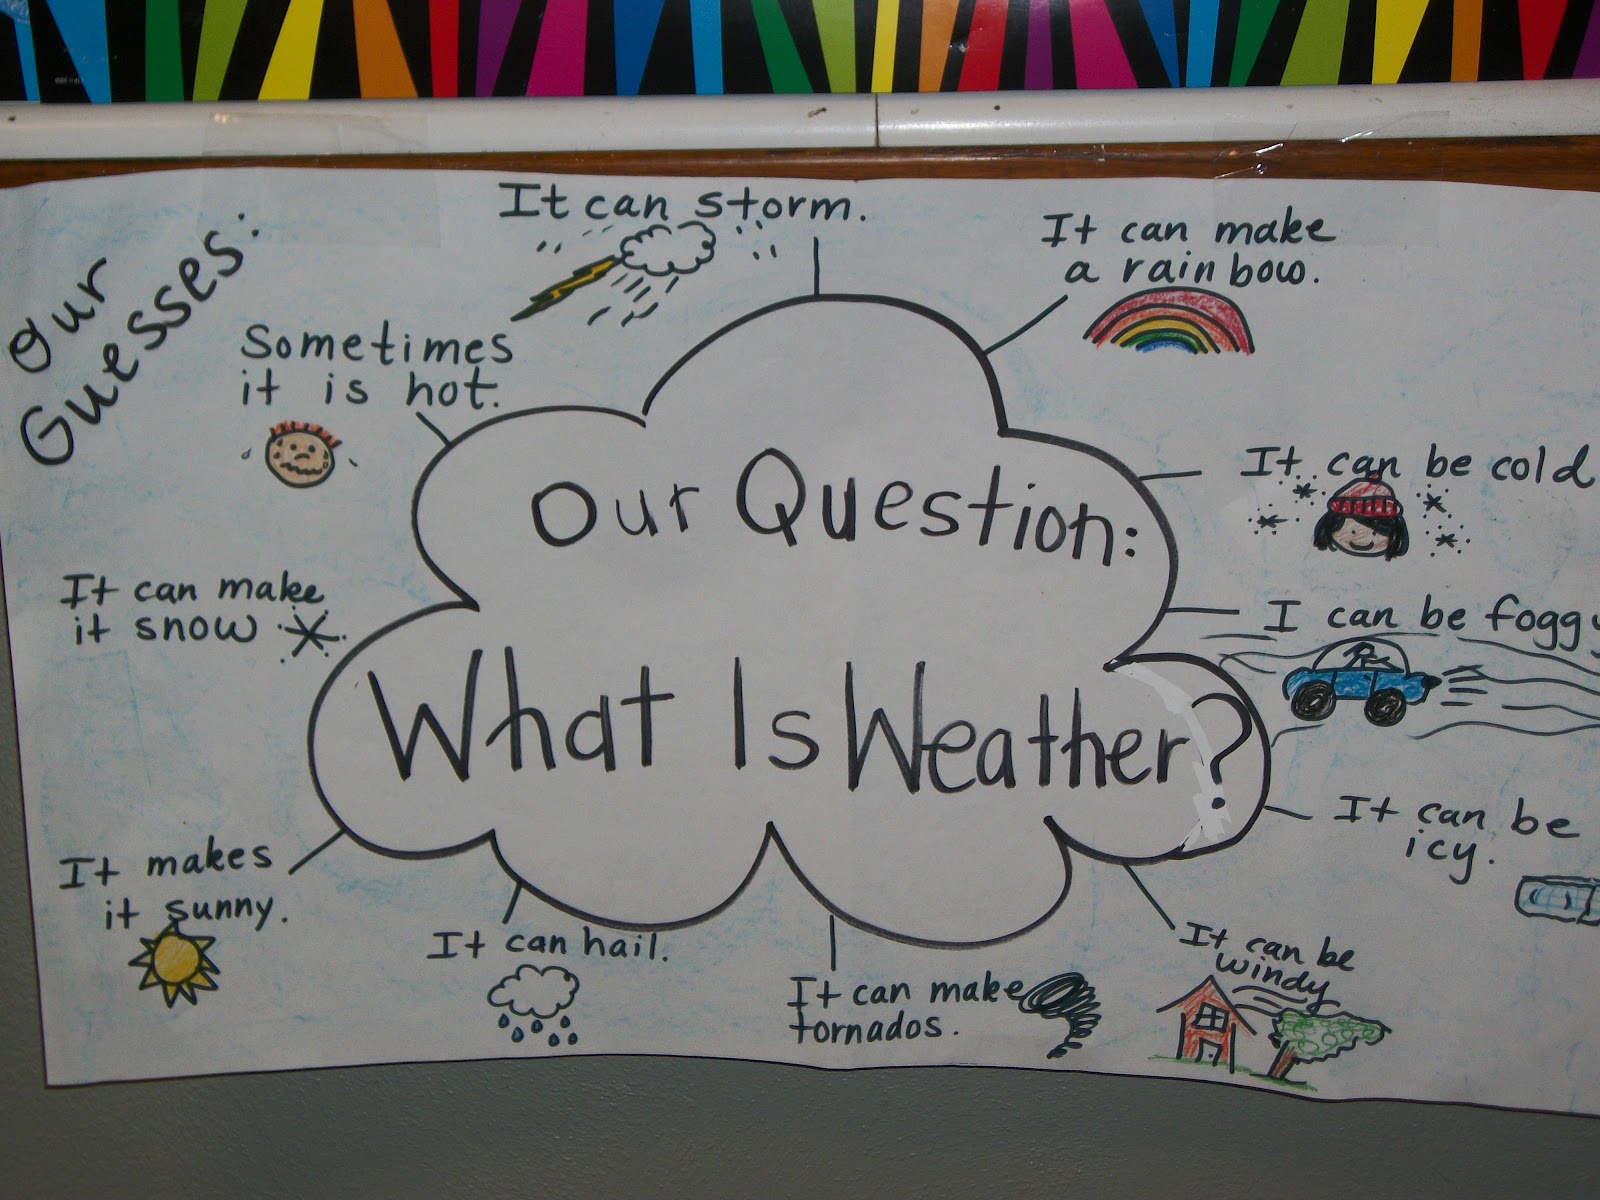 Our
Guesses:
It can storm.
It can make
a rainbow.
Sometimes
it is hot.
Our Question:
What Is Weather?
It can be cold
I can be foggy
It can be
icy.
It can be
windy
It can make
tornados.
It can hail.
It makes
it sunny.
It can make
it snow